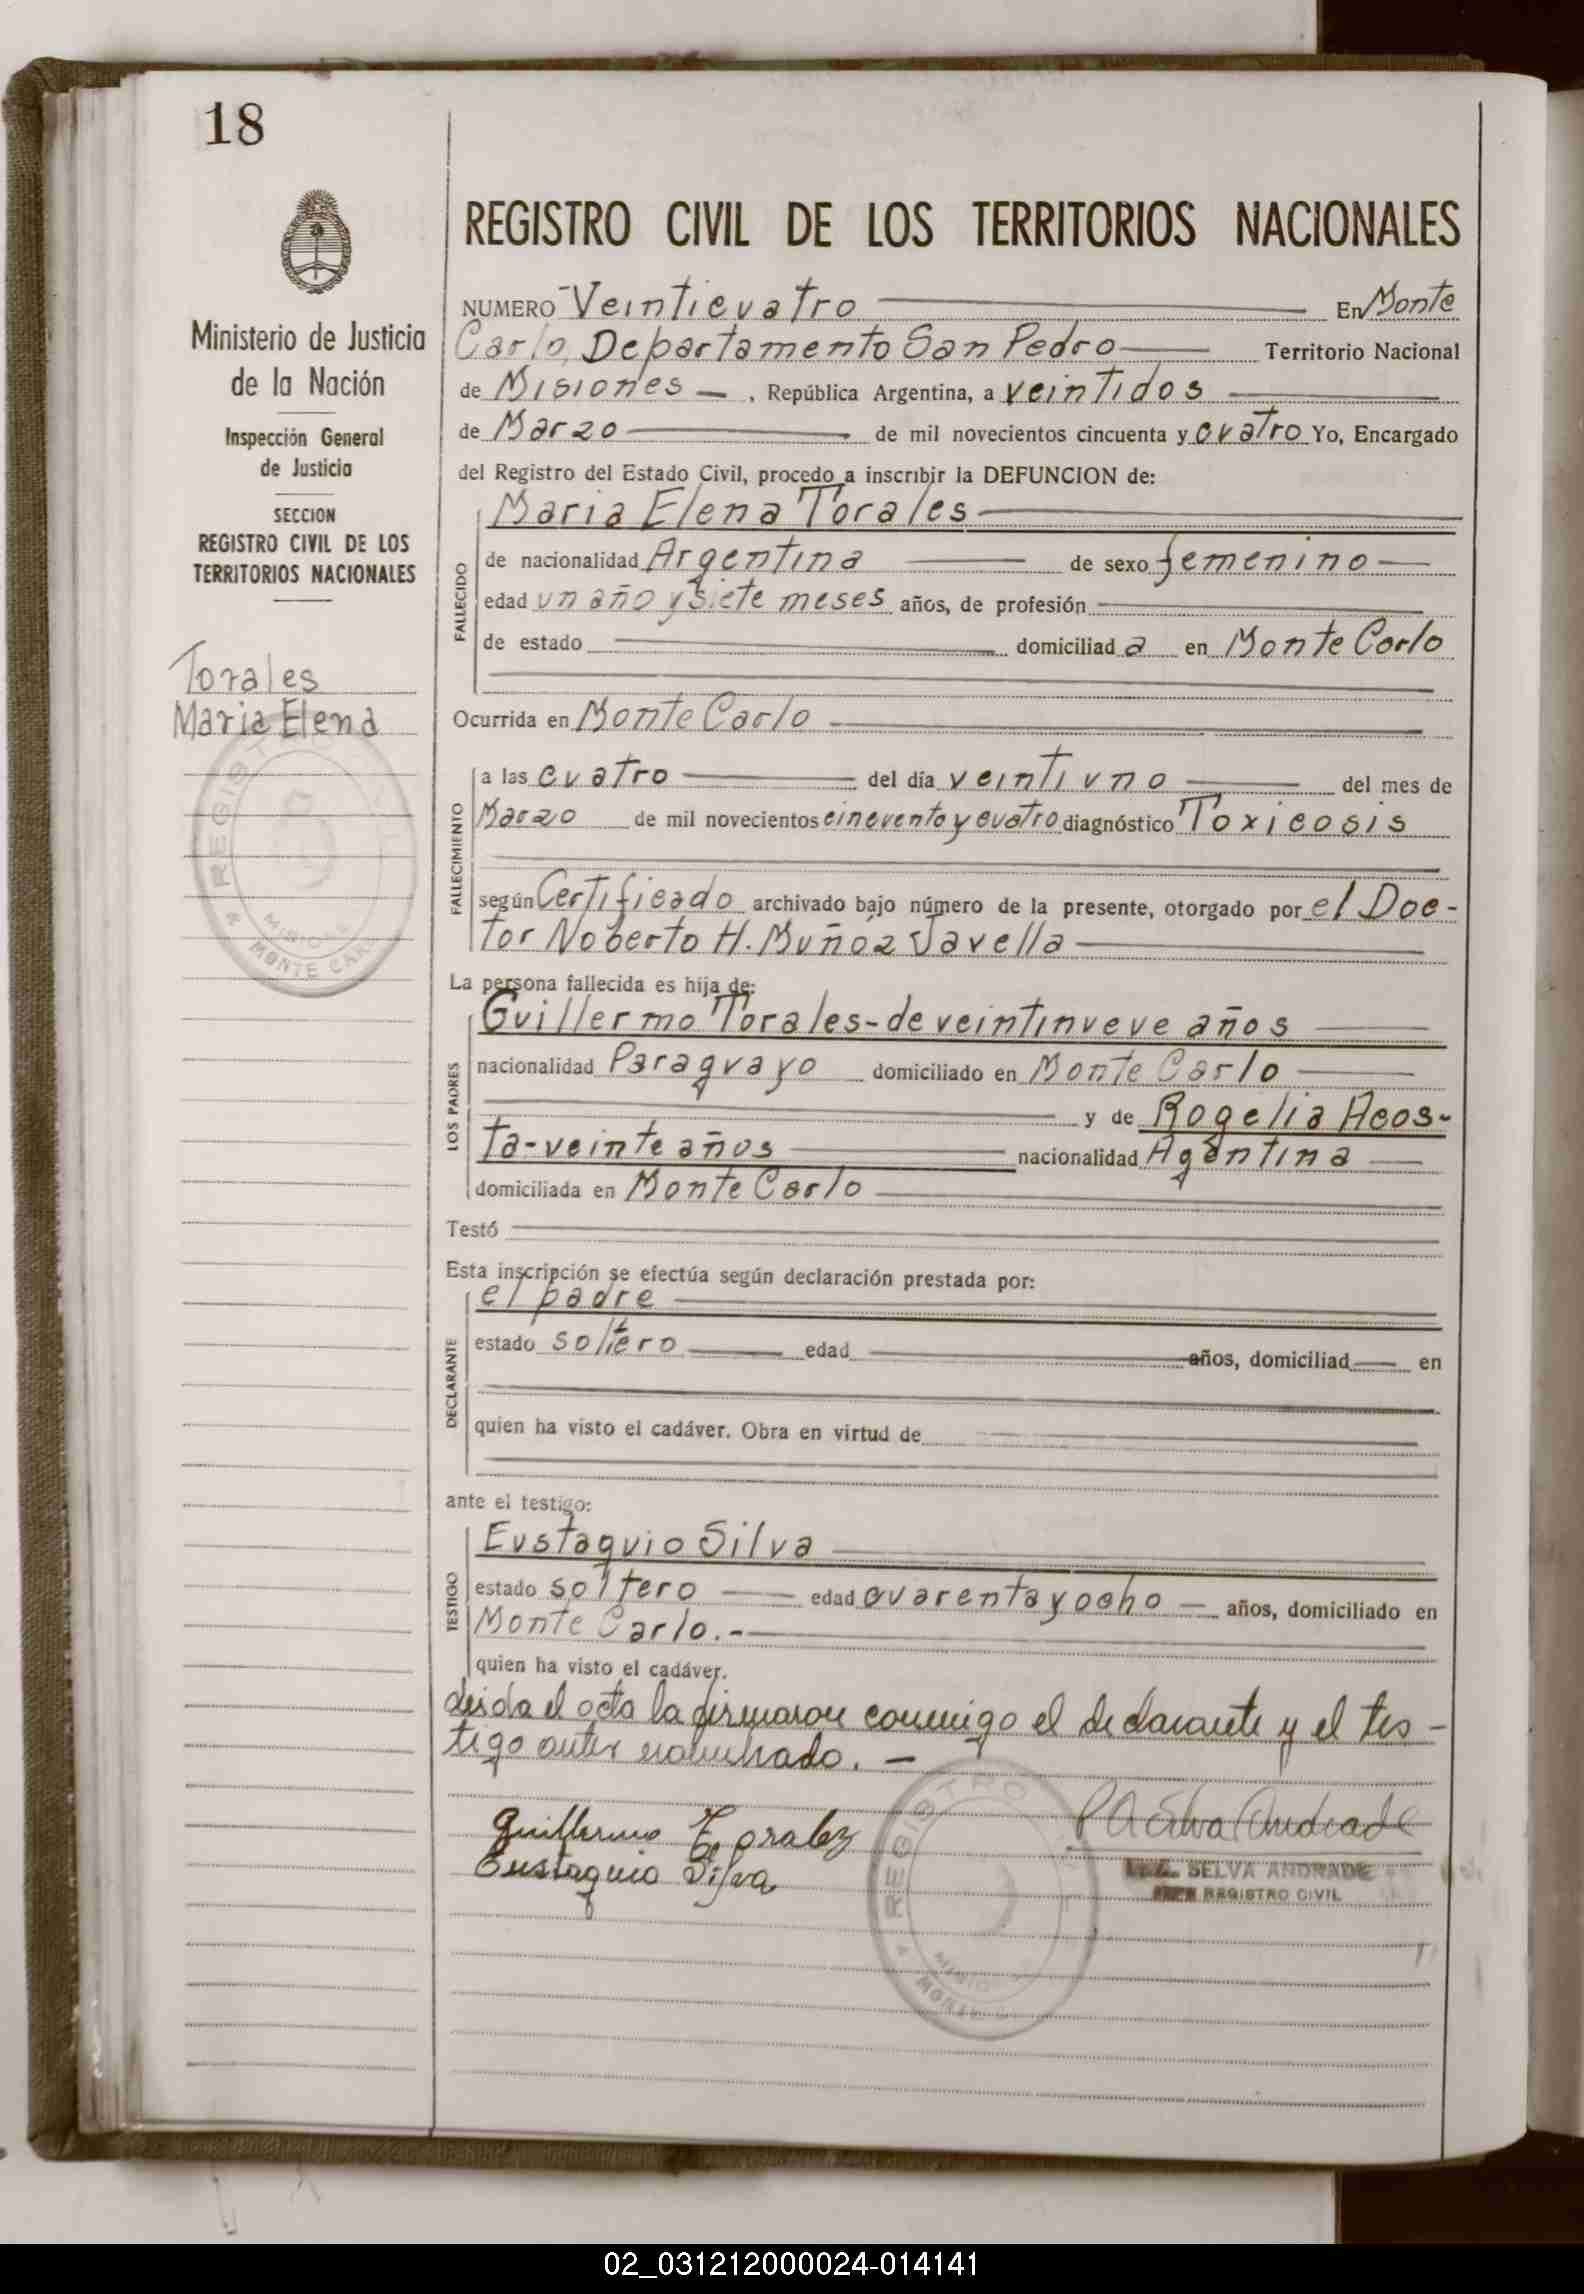 18
Ministerio de Justicia
de la Nación
Inspección General
de Justicia
SECCION
REGISTRO CIVIL DE LOS
TERRITORIOS NACIONALES
Torales
Maria Elena
REGIST
MISIONE
MONTE CAR
REGISTRO CIVIL DE LOS TERRITORIOS NACIONALES
NUMERO Veinticuatro En Monte
Carlo, Departamento San Pedro Territorio Nacional
de Misiones — , República Argentina, a veintidos
de Marzo de mil novecientos cincuenta y cuatro Yo, Encargado
del Registro del Estado Civil, procedo a inscribir la DEFUNCION de:
Maria Elena Torales
FALLECIDO
de nacionalidad Argentina de sexo femenino
edad un año y siete meses años, de profesión
de estado domiciliad a en Monte Carlo
Ocurrida en Monte Carlo
FALLECIMIENTO
a las cuatro del día veintiuno del mes de
Marzo de mil novecientos cincuenta y cuatro diagnóstico Toxicosis
según Certificado archivado bajo número de la presente, otorgado por el Doc-
tor Noberto H. Muñóz Javella
La persona fallecida es hija de:
LOS PADRES
Guillermo Torales-de veintinueve años
nacionalidad Paraguayo domiciliado en Monte Carlo
y de Rogelia Acos-
ta-veinte años nacionalidad Agentina
domiciliada en Monte Carlo
Testó
Esta inscripción se efectúa según declaración prestada por:
DECLARANTE
el padre
estado soltero edad años, domiciliad en
quien ha visto el cadáver. Obra en virtud de
ante el testigo:
TESTIGO
Eustaquio Silva
estado soltero edad cuarenta y ocho años, domiciliado en
Monte Carlo.-
quien ha visto el cadáver.
Leida el acta la firmaron conmigo el declarante y el tes-
tigo antes nombrado. —
Guillermo Toralez
Eustaquio Silva
SELVA ANDRADE
REGISTRO CIVIL
REGISTRO
MISIO
MONTE C
02_031212000024-014141